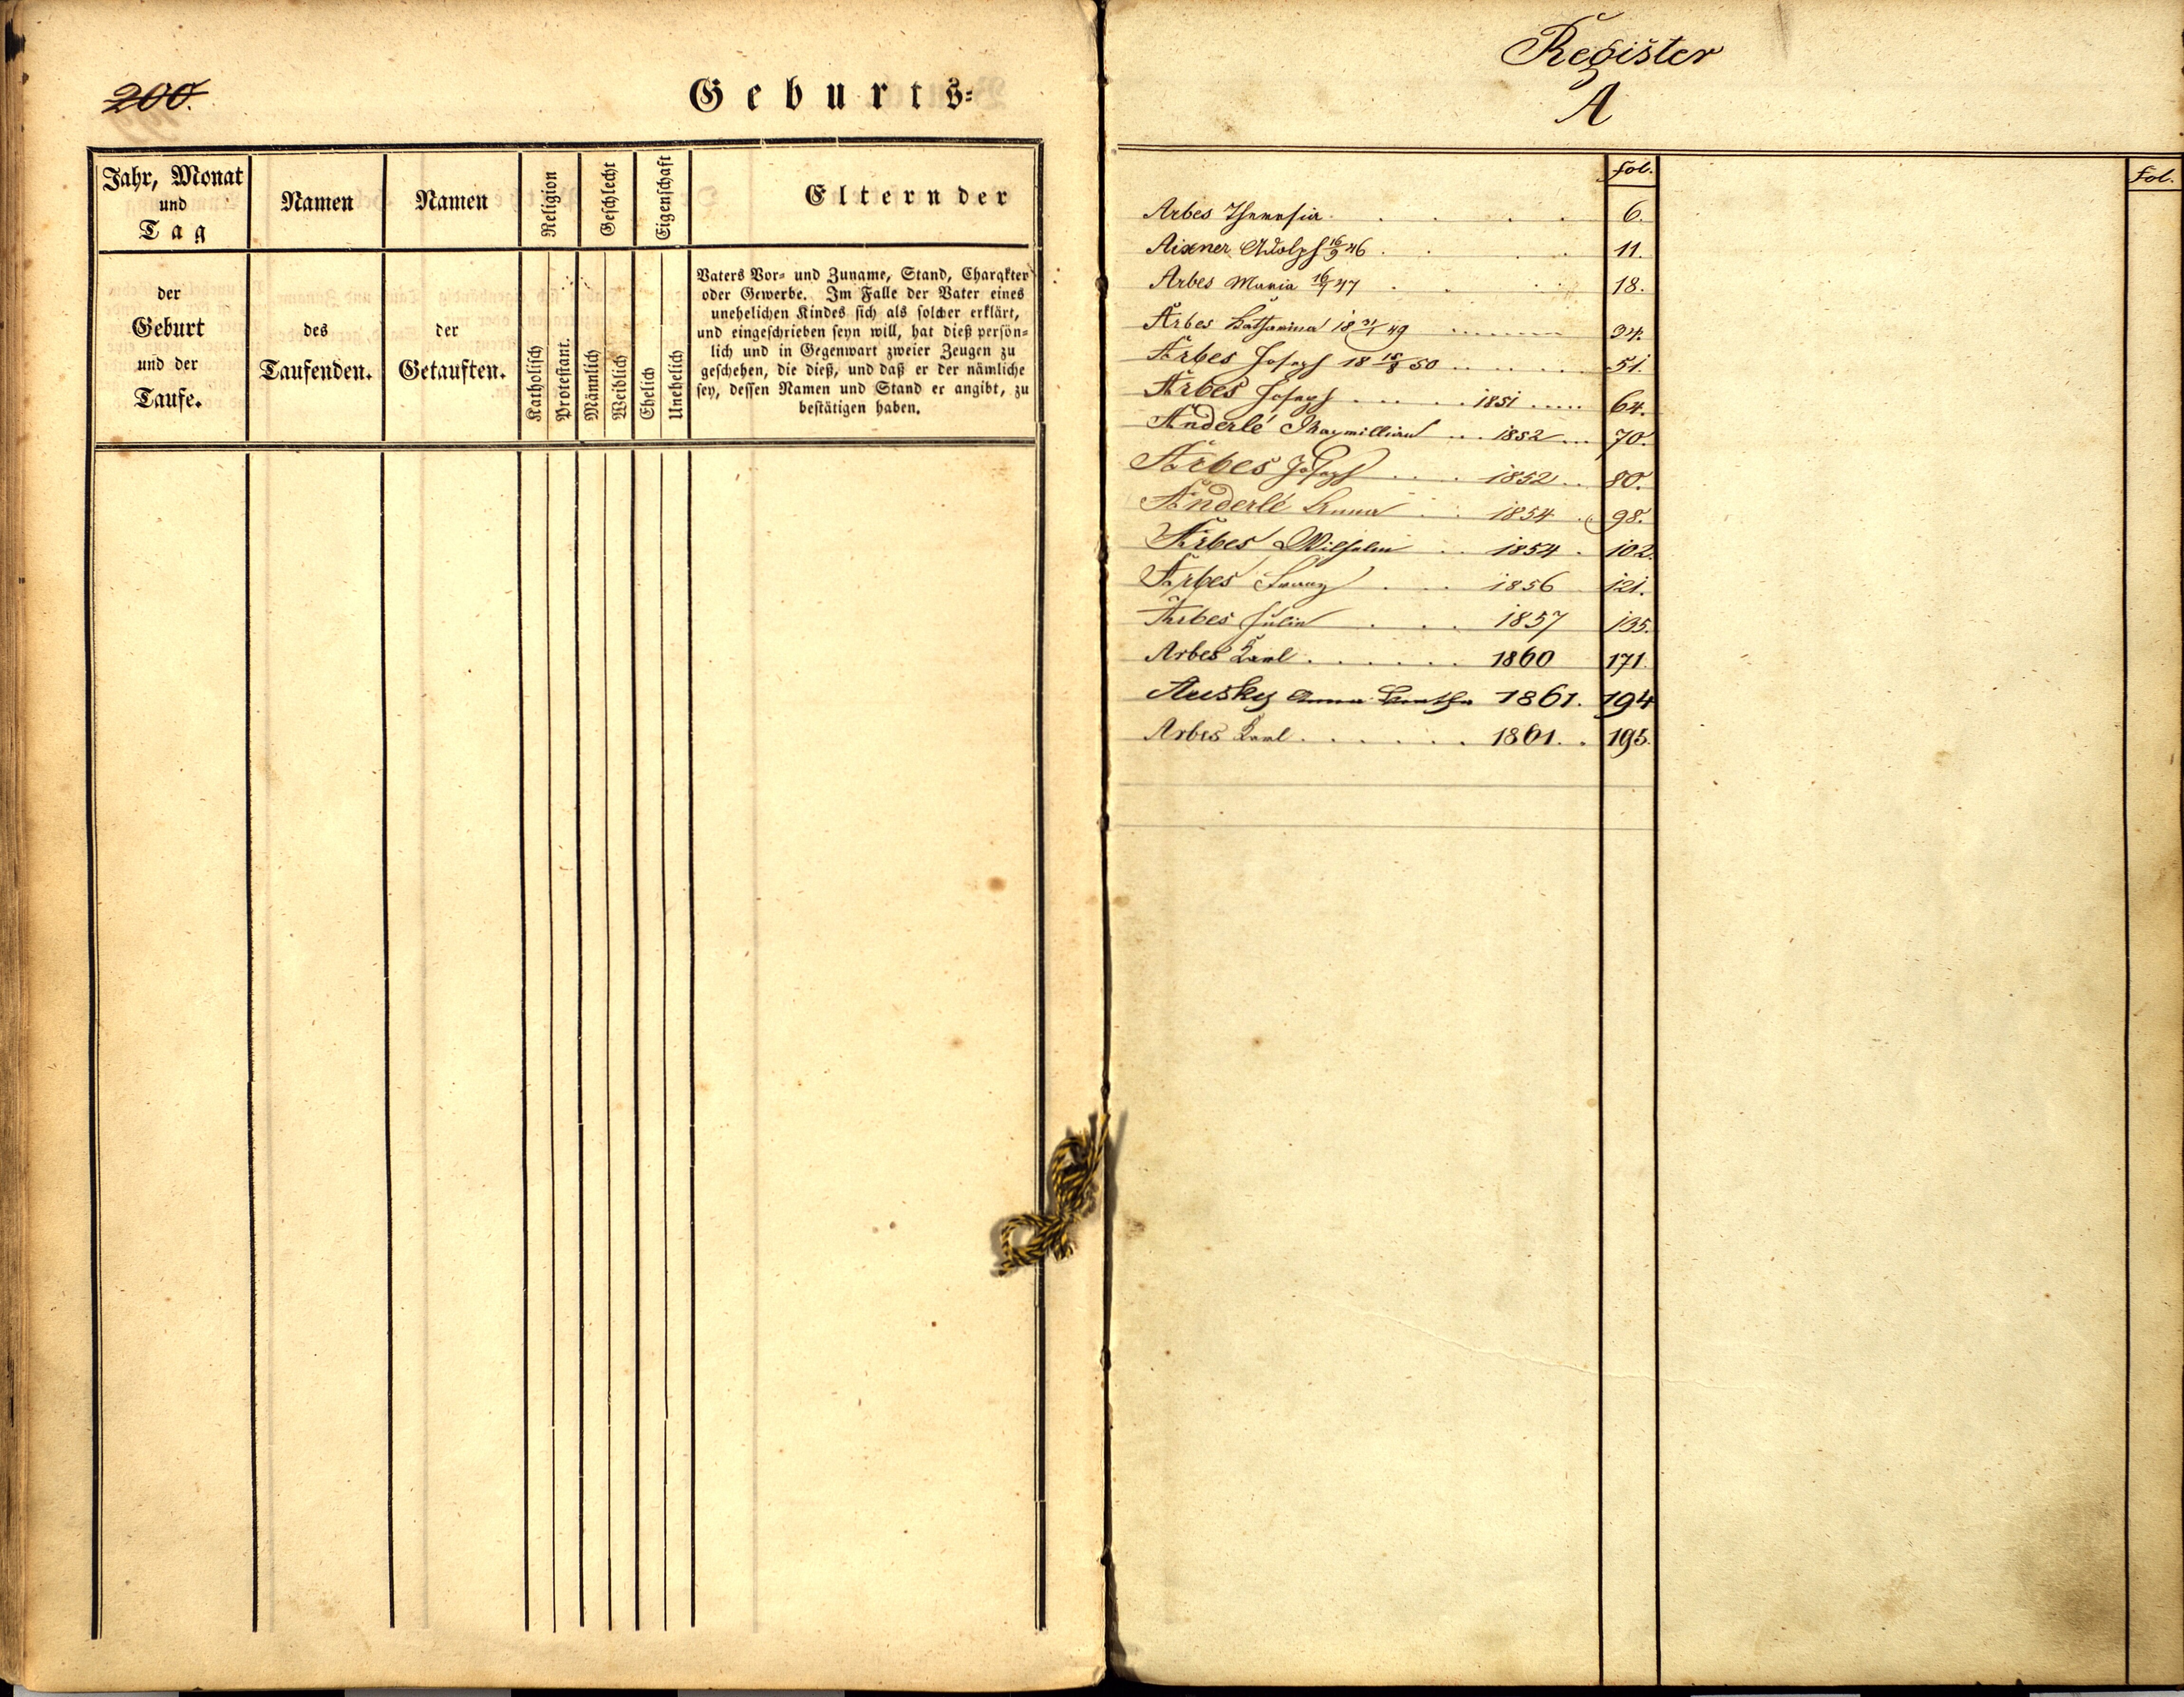 200.
Geburts-
Jahr, Monat
und
Tag
Namen
Namen
Religion
Geschlecht
Eigenschaft
Eltern der
der
Geburt
und der
Taufe.
des
Taufenden.
der
Getauften.
Katholisch
Protestant.
Männlich
Weiblich
Ehelich
Unehelich
Vaters Vor- und Zuname, Stand, Charakter
oder Gewerbe. Im Falle der Vater eines
unehelichen Kindes sich als solcher erklärt,
und eingeschrieben seyn will, hat dieß persön-
lich und in Gegenwart zweier Zeugen zu
geschehen, die dieß, und daß er der nämliche
sey, dessen Namen und Stand er angibt, zu
bestätigen haben.
Register
A
Fol.
Fol.
Arbes Theresia . . . . 6.
Aixner Adolph 16/9 46 . . . . 11.
Arbes Maria 16/7 47 . . . 18.
Arbes Katharina 18 31/1 49 ........ 34.
Arbes Joseph 18 18/8 50 ....... 51.
Arbes Joseph ..... 1851 ..... 64.
Anderlé Maxmillian ... 1852 ... 70.
Arbes Joseph .... 1852 .. 80.
Anderlé Anna ... 1854 . 98.
Arbes Wilhelm .. 1854 . 102.
Arbes Franz ... 1856 121.
Arbes Julia ... 1857 135.
Arbes Karl ....... 1860 171.
Ausky Anna 1861. 194
Arbes Karl ....... 1861.. 195.